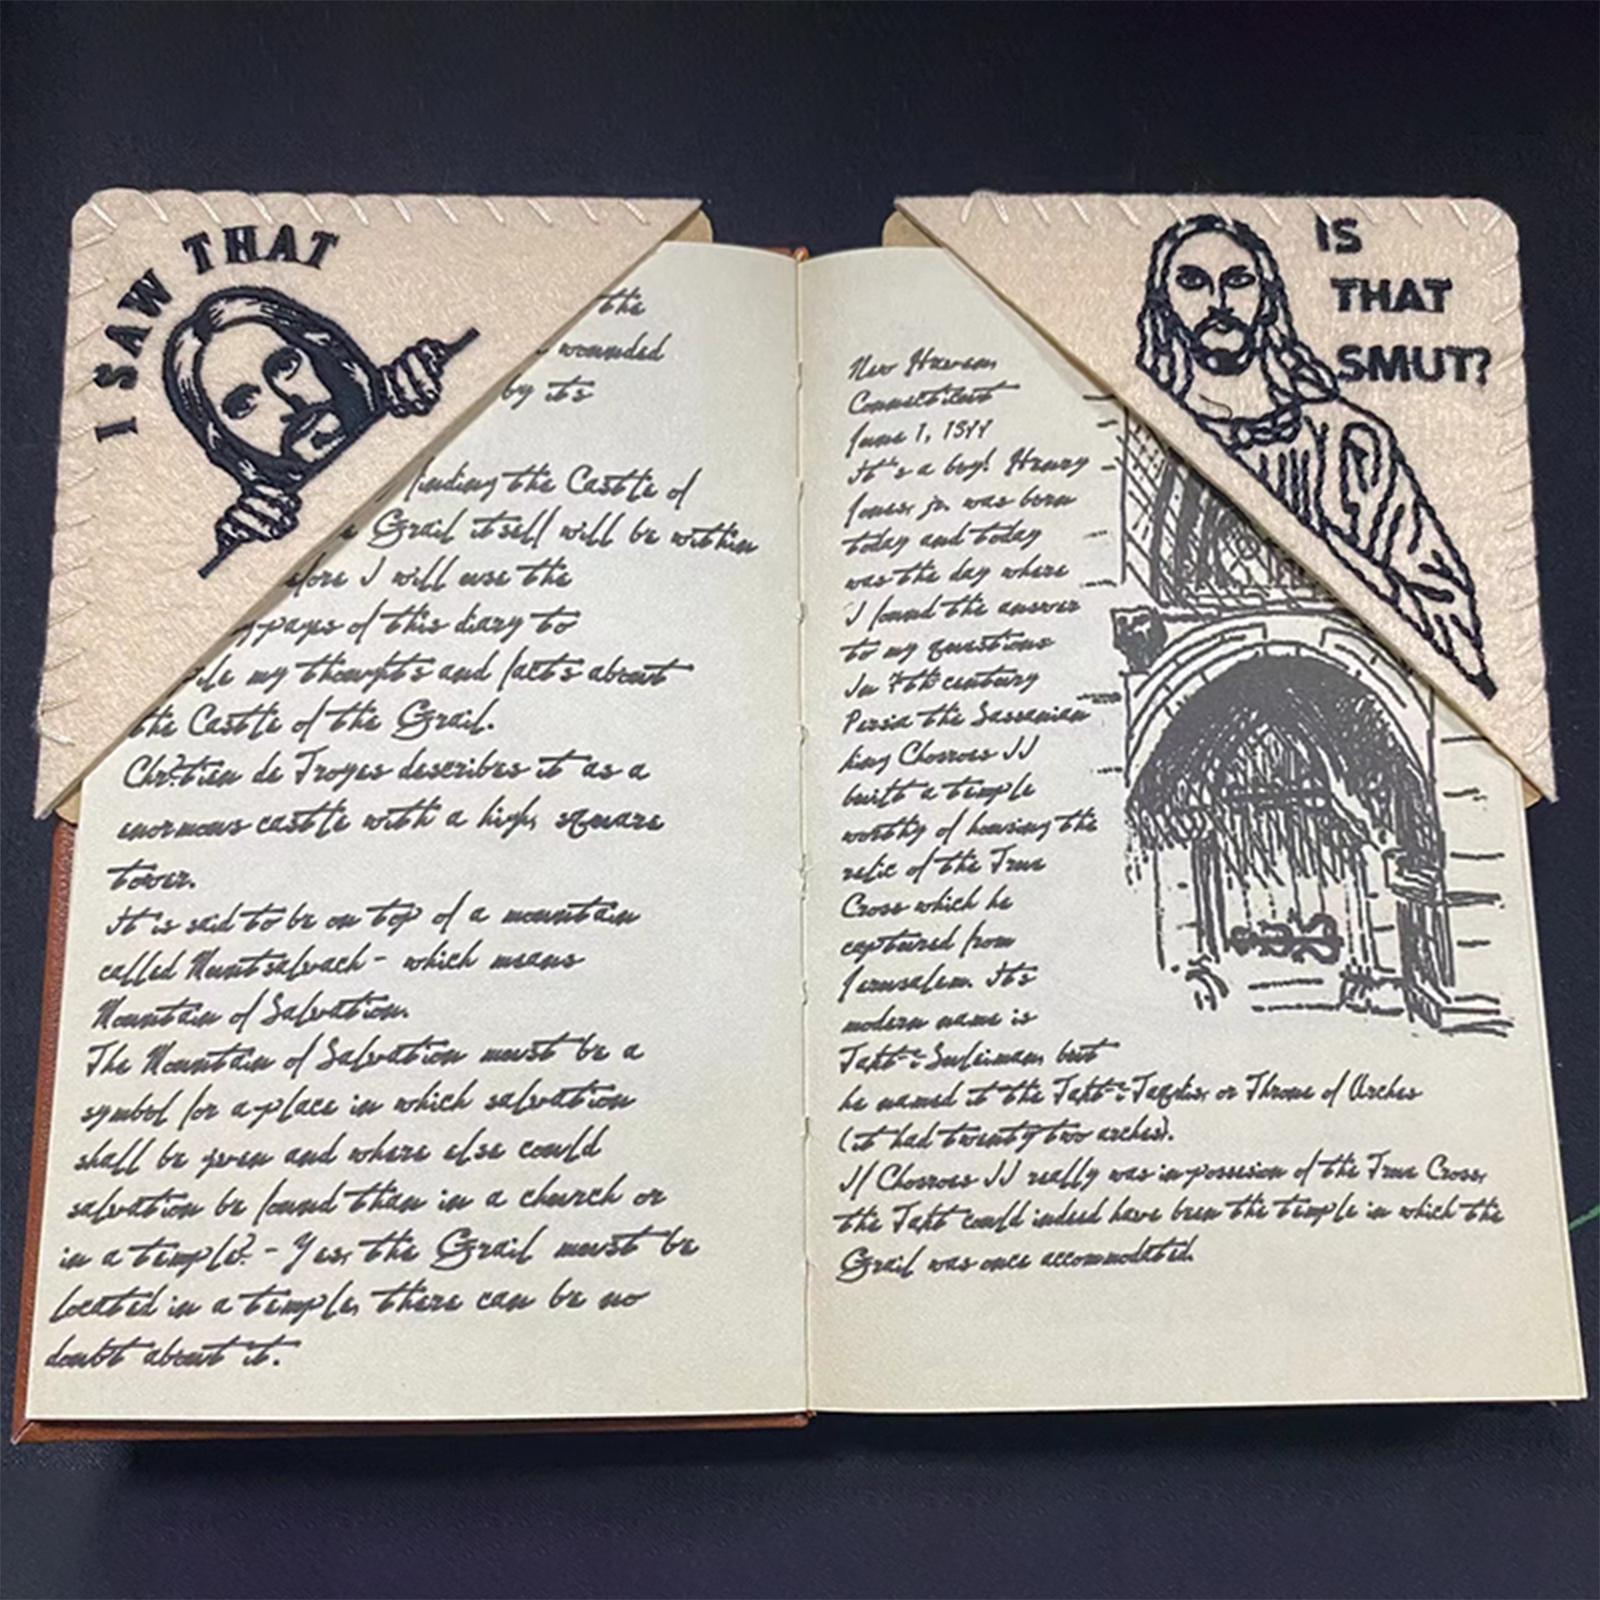 I SAW THAT
IS
THAT
SMUT?
the
wounded
by it's
finding the Castle of
Grail itself will be within
I will use the
pages of this diary to
my thoughts and facts about
the Castle of the Grail.
Chr?tien de Troyes describes it as a
enormous castle with a high, square
tower.
It is said to be on top of a mountain
called Muntsalvach - which means
Mountain of Salvation.
The Mountain of Salvation must be a
symbol for a place in which salvation
shall be given and where else could
salvation be found than in a church or
in a temple? - Yes, the Grail must be
located in a temple, there can be no
doubt about it.
New Haven,
Connecticut
June 1, 1899
It's a boy! Henry
Jones, jr. was born
today and today
was the day where
I found the answer
to my questions
In 7th century
Persia the Sassanian
king Chosroes II
built a temple
worthy of housing the
relic of the True
Cross which he
captured from
Jerusalem. It's
modern name is
Takt-i-Suleiman, but
he named it the Takt-i-Taqdis, or Throne of Arches
(it had twenty two arches).
If Chosroes II really was in possesion of the True Cross,
the Takt could indeed have been the temple in which the
Grail was once accommodated.